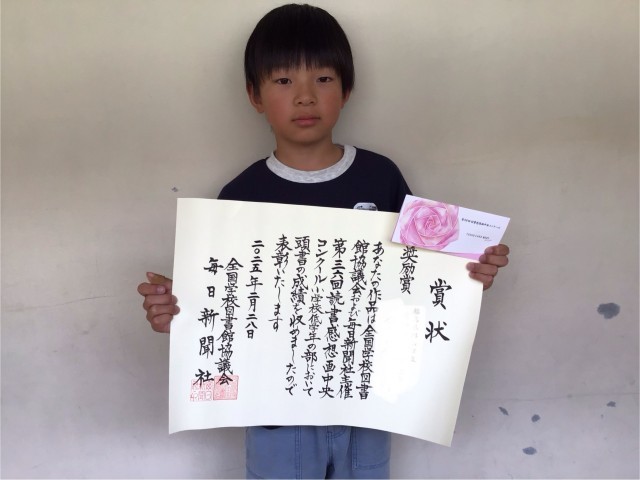 賞状
奨励賞
あなたの作品は全国学校図書
館協議会および毎日新聞社主催
第三六回読書感想画中央
コンクール小学校低学年の部において
頭書の成績を収めましたので
表彰いたします
二〇二五年二月二八日
全国学校図書館協議会
毎日新聞社